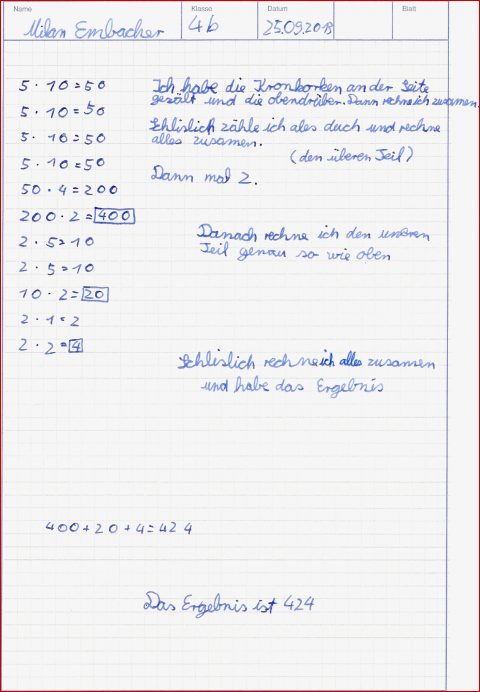 Name Klasse Datum Blatt
Milan Embacher 4b 25.09.2018
5 · 10 = 50
5 · 10 = 50
5 · 10 = 50
5 · 10 = 50
50 · 4 = 200
200 · 2 = 400
2 · 5 = 10
2 · 5 = 10
10 · 2 = 20
2 · 1 = 2
2 · 2 = 4
Ich habe die Kronkorken an der Seite
gezält und die obendrüber. Dann rechne ich zusamen.
Schlislich zähle ich ales duch und rechne
alles zusamen.
(den überen Teil)
Dann mal 2.
Danach rechne ich den unteren
Teil genau so wie oben
Schlislich rechne ich alles zusamen
und habe das Ergebnis
400 + 20 + 4 = 424
Das Ergebnis ist 424